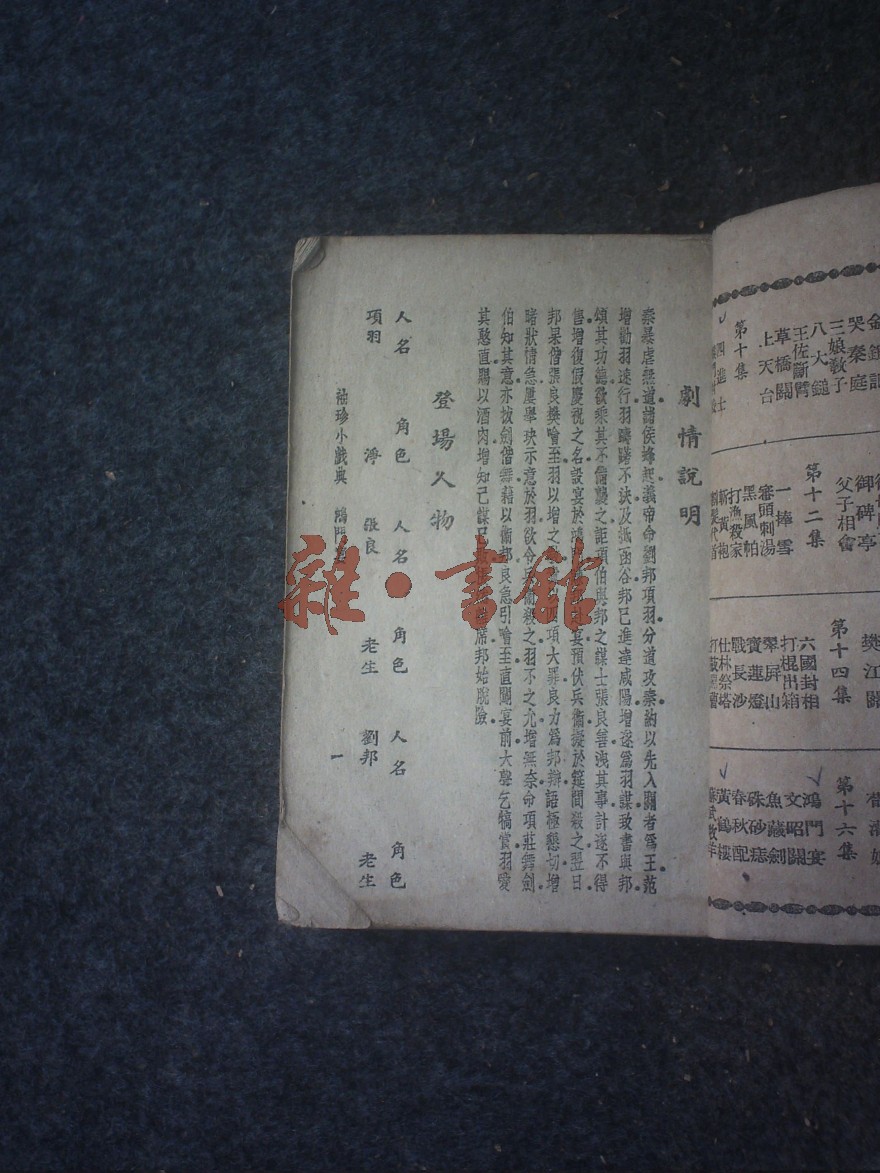 金錢記
哭秦庭
三娘教子
八大鎚
王佐斷臂
草橋關
上天台
第十集
四進士
御碑亭
父子相會
第十二集
一捧雪
審頭刺湯
黑風帕
打漁殺家
斬黃袍
樊江關
第十四集
六國封相
打棍出箱
翠屏山
寶蓮燈
戰長沙
仕林祭塔
第十六集
鴻門宴
文昭關
魚藏劍
硃砂痣
春秋配
黃鶴樓
劇情說明
秦暴虐無道諸侯蜂起義帝命劉邦項羽分道攻秦約以先入關者爲王范
增勸羽速行羽躊躇不決及抵函谷邦已進達咸陽增遂爲羽謀致書與邦
頌其功德欲乘其不備襲之詎項伯與邦之謀士張良善洩其事計遂不得
售增復假慶祝之名設宴於鴻 宴預伏兵衞擬於筵間殺之翌日
邦果偕張良樊噲至羽以增之 四項大罪良力爲邦辯語極懇切增
睹狀情急屢舉玦示意於羽欲令兵衞殺之羽不之允增無奈命項莊舞劍
伯知其意亦拔劍偕舞藉以衞邦良急引噲至直闖宴前大聲乞犒賞羽愛
其憨直賜以酒肉增知己謀已 席邦始脫險
登場人物
人名 角色 人名 角色 人名 角色
項羽 淨 張良 老生 劉邦 老生
袖珍小戲典 鴻門宴 一
雜·書館